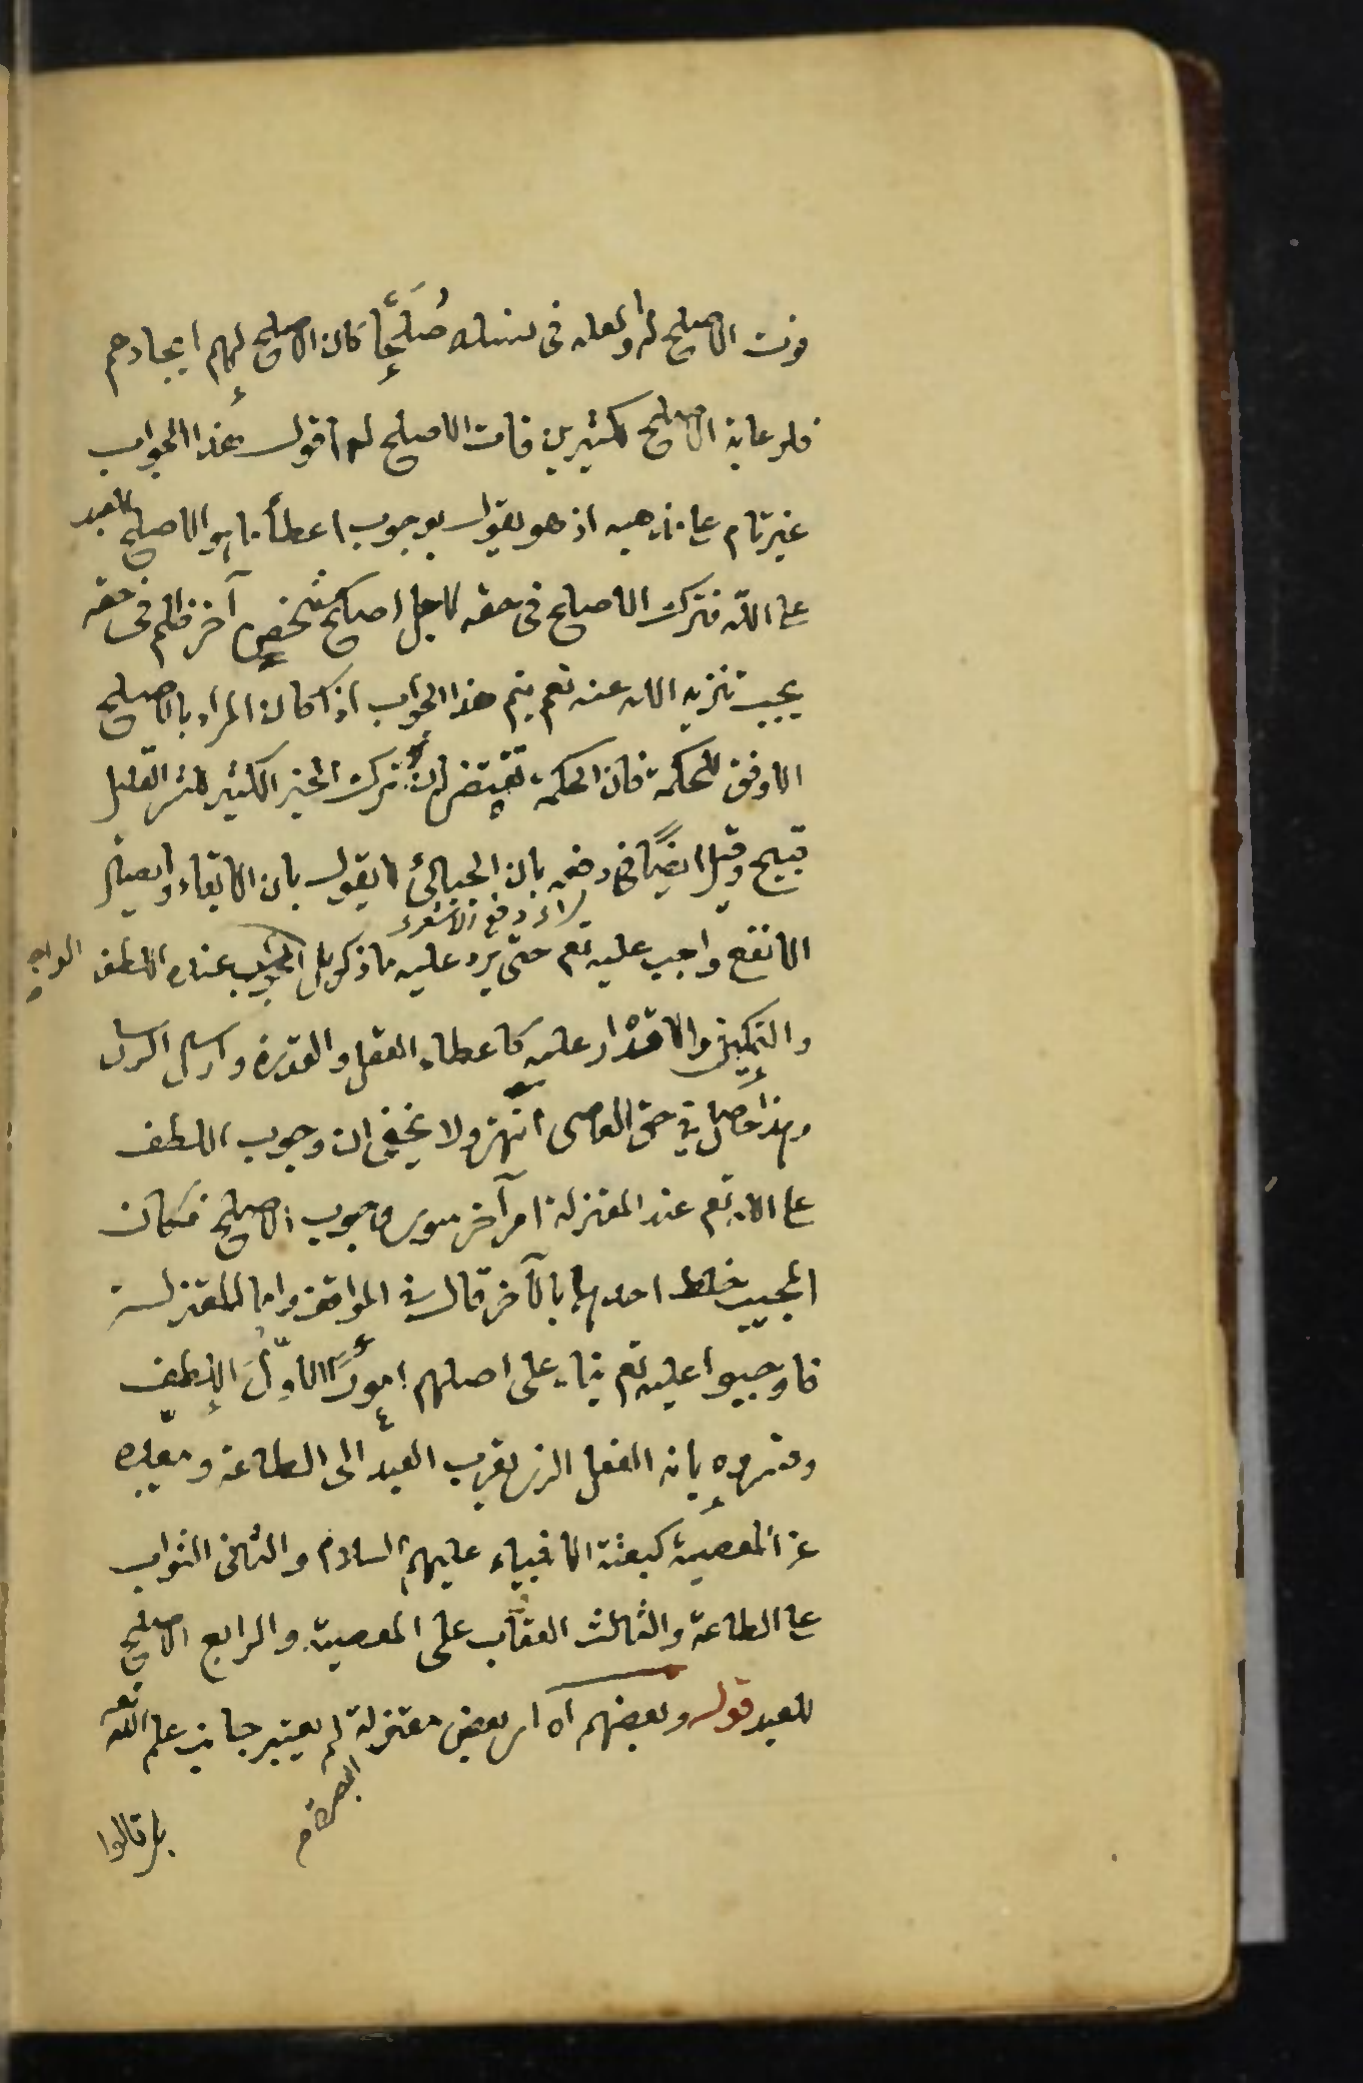 فوت الاصلح له ولعله فى نسله صلحاء كان الاصلح لهم ايجادهم
فلرعاية الاصلح لكثيرين فات الاصلح له اقول هذا الجواب
غير تام على مذهبه اذ هو يقول بوجوب اعطاء ما هو الاصلح للعبد
على الله فترك الاصلح فى حقه لاجل اصلح شخص آخر ظلم فى حقه
يجب تنزيه الله عنه نعم يتم هذا الجواب اذا كان المراد بالاصلح
الاوفق للحكمة فان الحكمة تقتضى ان ترك الخير الكثير للشر القليل
قبيح وقيل ايضا فى دفعه بان الجبائى لا يقول بان الابقاء وايصال
اى دفع الاشعرى
الانفع واجب عليه تعم حتى يرد عليه ما ذكر بل الواجب عنده اللطف
والتمكين والاقدار عليه كاعطاء العقل والقدرة وارسال الرسل
وهذا حاصل فى حق العاصى انتهى ولا يخفى ان وجوب اللطف
على الله تعم عند المعتزلة امر آخر سوى وجوب الاصلح فكان
المجيب خلط احدهما بالآخر قال فى المواقف واما المعتزلة
فاوجبوا عليه تعم بناء على اصلهم امورا الاول اللطف
وفسروه بانه الفعل الذى يقرب العبد الى الطاعة ويبعده
عن المعصية كبعثة الانبياء عليهم السلام والثانى الثواب
على الطاعة والثالث العقاب على المعصية والرابع الاصلح
للعبد قوله وبعضهم آه اى بعض معتزلة لم يعتبر جانب علم الله تعم
البصرة م
بل قالوا